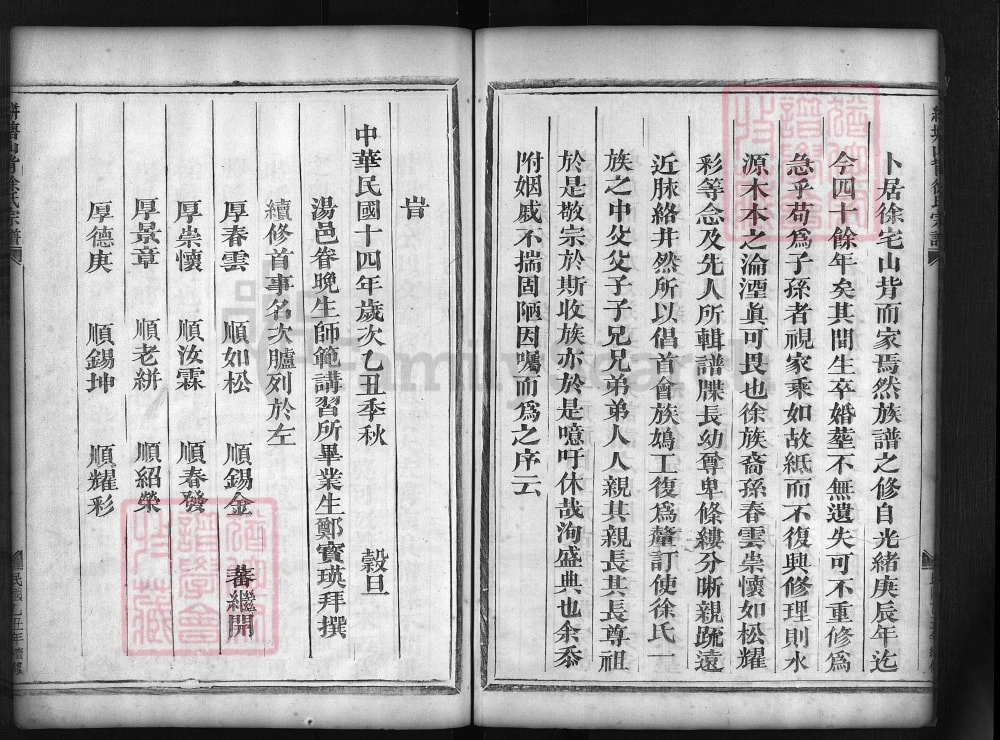 卜居徐宅山背而家焉然族譜之修自光緒庚辰年迄
今四十餘年矣其間生卒婚塟不無遺失可不重修爲
急乎苟爲子孫者視家乘如故紙而不復興修理則水
源木本之淪湮眞可畏也徐族裔孫春雲崇懷如松耀
彩等念及先人所輯譜牒長幼尊卑條縷分晰親䟽遠
近脉絡井然所以倡首會族鳩工復爲釐訂使徐氏一
族之中父父子子兄兄弟弟人人親其親長其長尊祖
於是敬宗於斯收族亦於是噫吁休哉洵盛典也余忝
附姻戚不揣固陋因囑而爲之序云
旹
中華民國十四年歲次乙丑季秋 穀旦
湯邑眷晚生師範講習所畢業生鄭寳瑛拜撰
續修首事名次臚列於左
厚春雲 順如松 順錫金 蕃繼開
厚崇懷 順汝霖 順春發
厚景章 順老絣 順紹榮
厚德庚 順錫坤 順耀彩
徐氏宗譜